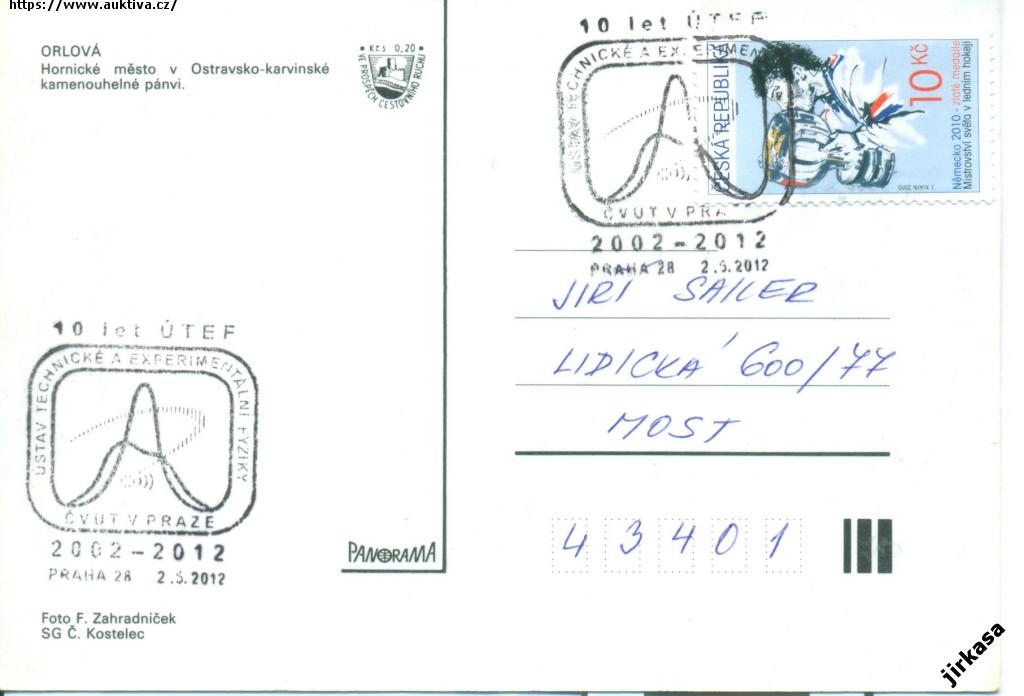 https://www.auktiva.cz/
ORLOVÁ
Hornické město v Ostravsko-karvinské
kamenouhelné pánvi.
Kčs 0,20
VE PROSPĚCH CESTOVNÍHO RUCHU
10 let ÚTEF
ÚSTAV TECHNICKÉ A EXPERIMEN
ČVUT V PRA
2002-2012
PRAHA 28 2.5.2012
ČESKÁ REPUBLIKA
10 Kč
Německo 2010 - zlaté medaile
Mistrovství světa v ledním hokeji
JIŘÍ SAILER
LIDICKÁ 600/77
MOST
43401
10 let ÚTEF
ÚSTAV TECHNICKÉ A EXPERIMENTÁLNÍ FYZIKY
ČVUT V PRAZE
2002-2012
PRAHA 28 2.5.2012
PANORAMA
Foto F. Zahradníček
SG Č. Kostelec
jirkasa